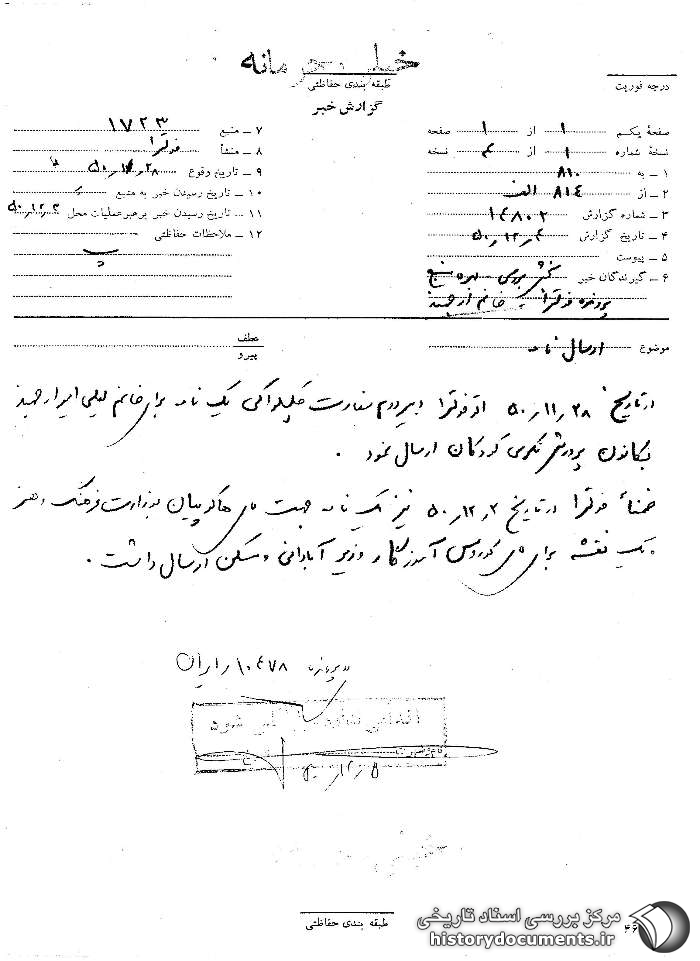 خیلی محرمانه
طبقه بندی حفاظتی
گزارش خبر
درجه فوریت
صفحهٔ یکم ۱ از ۱ صفحه
نسخهٔ شماره ۱ از ۴ نسخه
۱ – به ۸۱۰
۲ – از ۸۱۴ الف
۳ – شماره گزارش ۱۴۸۰۲
۴ – تاریخ گزارش ۵۰٫۱۲٫۴
۵ – پیوست
۶ – گیرندگان خبر بخش بررسی – بهره منبع
پرونده فوترا – خانم ارجمند
۷ – منبع ۱۷۲۳
۸ – منشأ فوترا
۹ – تاریخ وقوع ۵۰٫۱۱٫۲۸
۱۰ – تاریخ رسیدن خبر به منبع
۱۱ – تاریخ رسیدن خبر برهبر عملیات محل ۵۰٫۱۲٫۳
۱۲ – ملاحظات حفاظتی
موضوع ارسال نامه
عطف
پیرو
در تاریخ ۵۰٫۱۱٫۲۸ فوترا دبیردوم سفارت چکسلواکی یک نامه برای خانم لیلی امیرارجمند
بکانون پرورش فکری کودکان ارسال نمود .
ضمناً فوترا در تاریخ ۵۰٫۱۲٫۲ نیز یک نامه جهت هاکوپیان بوزارت فرهنگ و هنر
و یک نقشه برای کوروس آموزگار وزیر آبادانی و مسکن ارسال داشت .
در پرونده ۱۰۴۷۸ ایران
شود
۵۰٫۱۲٫۵
طبقه بندی حفاظتی
۴۶
مرکز بررسی اسناد تاریخی
historydocuments.ir